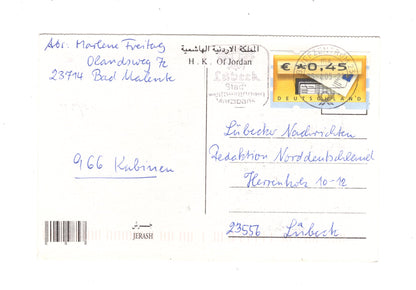 Abs. Marlene Freitag
Olandsweg 7c
23714 Bad Malente
المملكة الاردنية الهاشمية
H . K . Of Jordan
Lübeck
€ *0.45
DEUTSCHLAND
Lübecker Nachrichten
Redaktion Norddeutschland
Herrenholz 10-12
23556 Lübeck
966 Kabinen
جــرش
JERASH